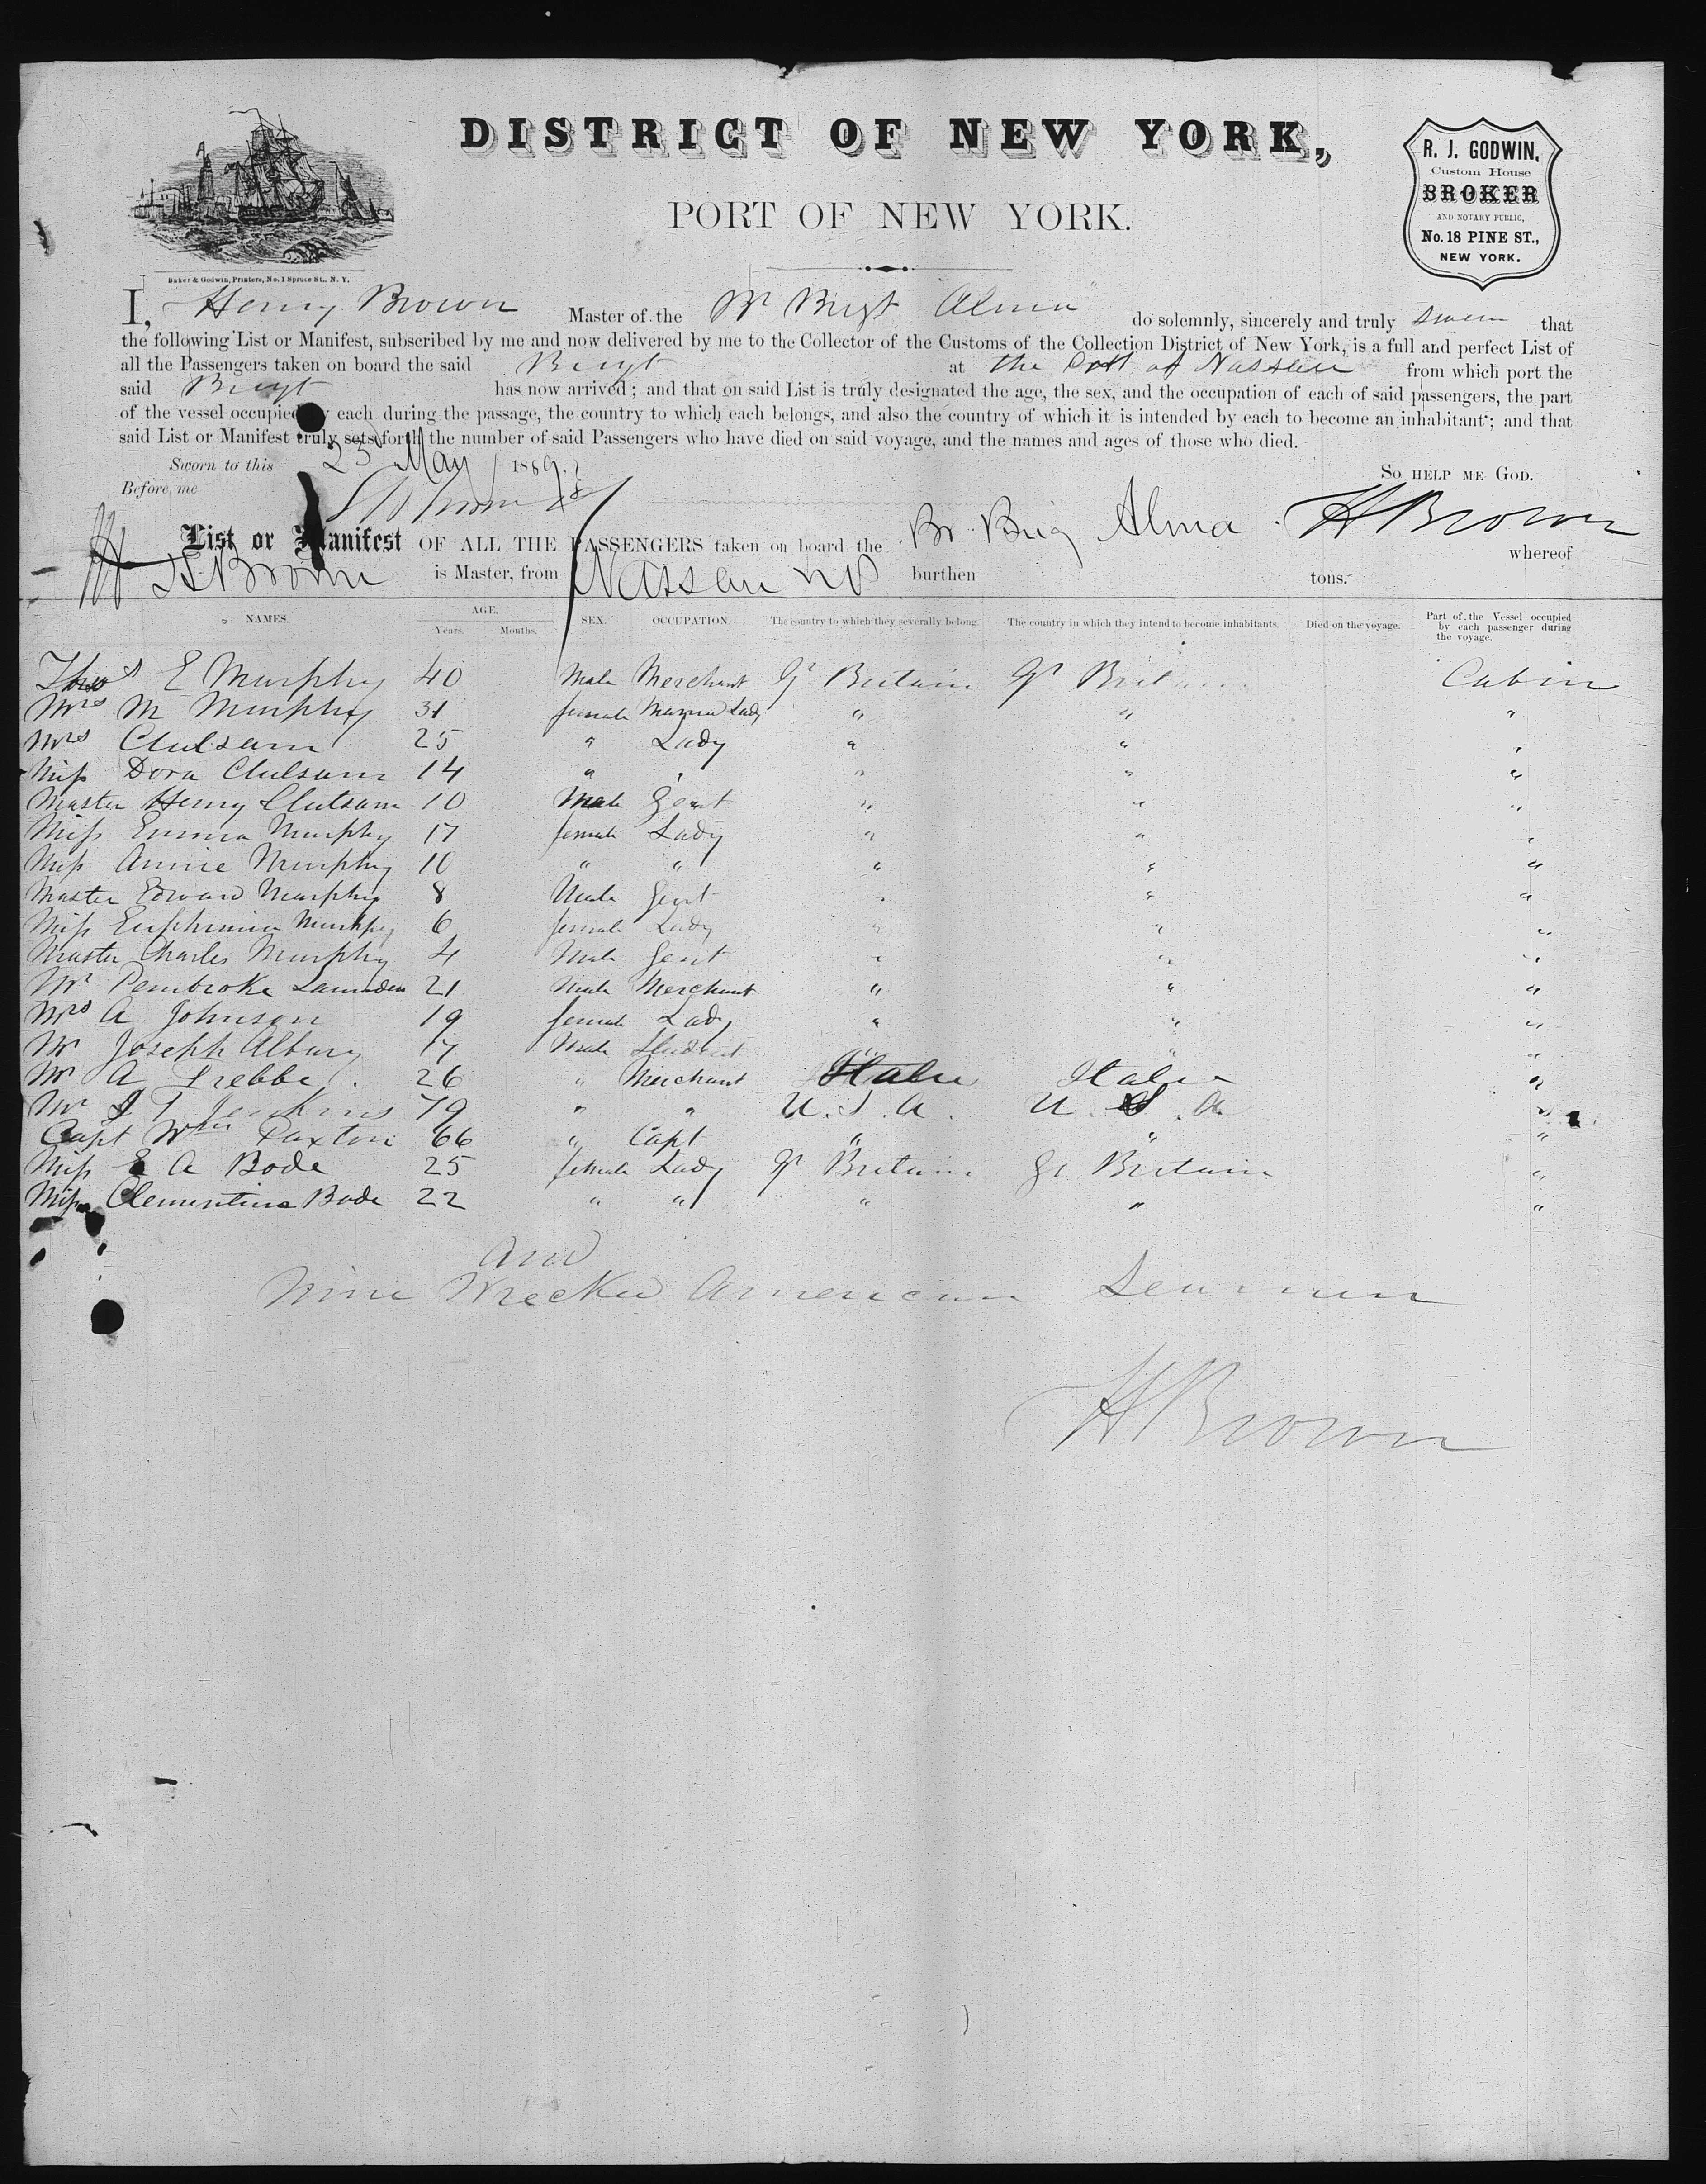 DISTRICT OF NEW YORK,
PORT OF NEW YORK.
R. J. GODWIN,
Custom House
BROKER
AND NOTARY PUBLIC,
No. 18 PINE ST.,
NEW YORK.
Baker & Godwin, Printers, No. 1 Spruce St., N. Y.
I, Henry Brown Master of the Br Brigt "Alma" do solemnly, sincerely and truly swear that
the following List or Manifest, subscribed by me and now delivered by me to the Collector of the Customs of the Collection District of New York, is a full and perfect List of
all the Passengers taken on board the said Brigt at the Port of Nassau from which port the
said Brigt has now arrived; and that on said List is truly designated the age, the sex, and the occupation of each of said passengers, the part
of the vessel occupied by each during the passage, the country to which each belongs, and also the country of which it is intended by each to become an inhabitant; and that
said List or Manifest truly sets forth the number of said Passengers who have died on said voyage, and the names and ages of those who died.
Sworn to this 25 May 1869. So HELP ME GOD.
Before me
H Brown
List or Manifest OF ALL THE PASSENGERS taken on board the Br. Brig Alma whereof
H Brown is Master, from Nassau NP burthen tons.
NAMES. AGE. Years. Months. SEX. OCCUPATION. The country to which they severally belong. The country in which they intend to become inhabitants. Died on the voyage. Part of the Vessel occupied by each passenger during the voyage.
Thos E Murphy 40 Male Merchant Gt Britain Gt Britain Cabin
Mrs M Murphy 31 female Lady " " "
Mrs Clutsam 25 " Lady " " "
Miss Dora Clutsam 14 " " " " "
Master Henry Clutsam 10 Male Gent " " "
Miss Emma Murphy 17 female Lady " " "
Miss Annie Murphy 10 " " " " "
Master Edward Murphy 8 Male Gent " " "
Miss Euphemia Murphy 6 female Lady " " "
Master Charles Murphy 4 Male Gent " " "
Mr Pembroke 21 Male Merchant " " "
Mrs A Johnson 19 female Lady " " "
Mr Joseph Albury 17 Male Student " " "
Mr A Trebbe 26 " Merchant Italie Italie "
Mr J T Jenkins 79 " " U.S.A. U.S.A. "
Capt Wm Paxton 66 " Capt " " "
Miss E A Bode 25 female Lady Gt Britain Gt Britain "
Miss Clementina Bode 22 " " " " "
And
Nine Wrecked American Seamen
H Brown